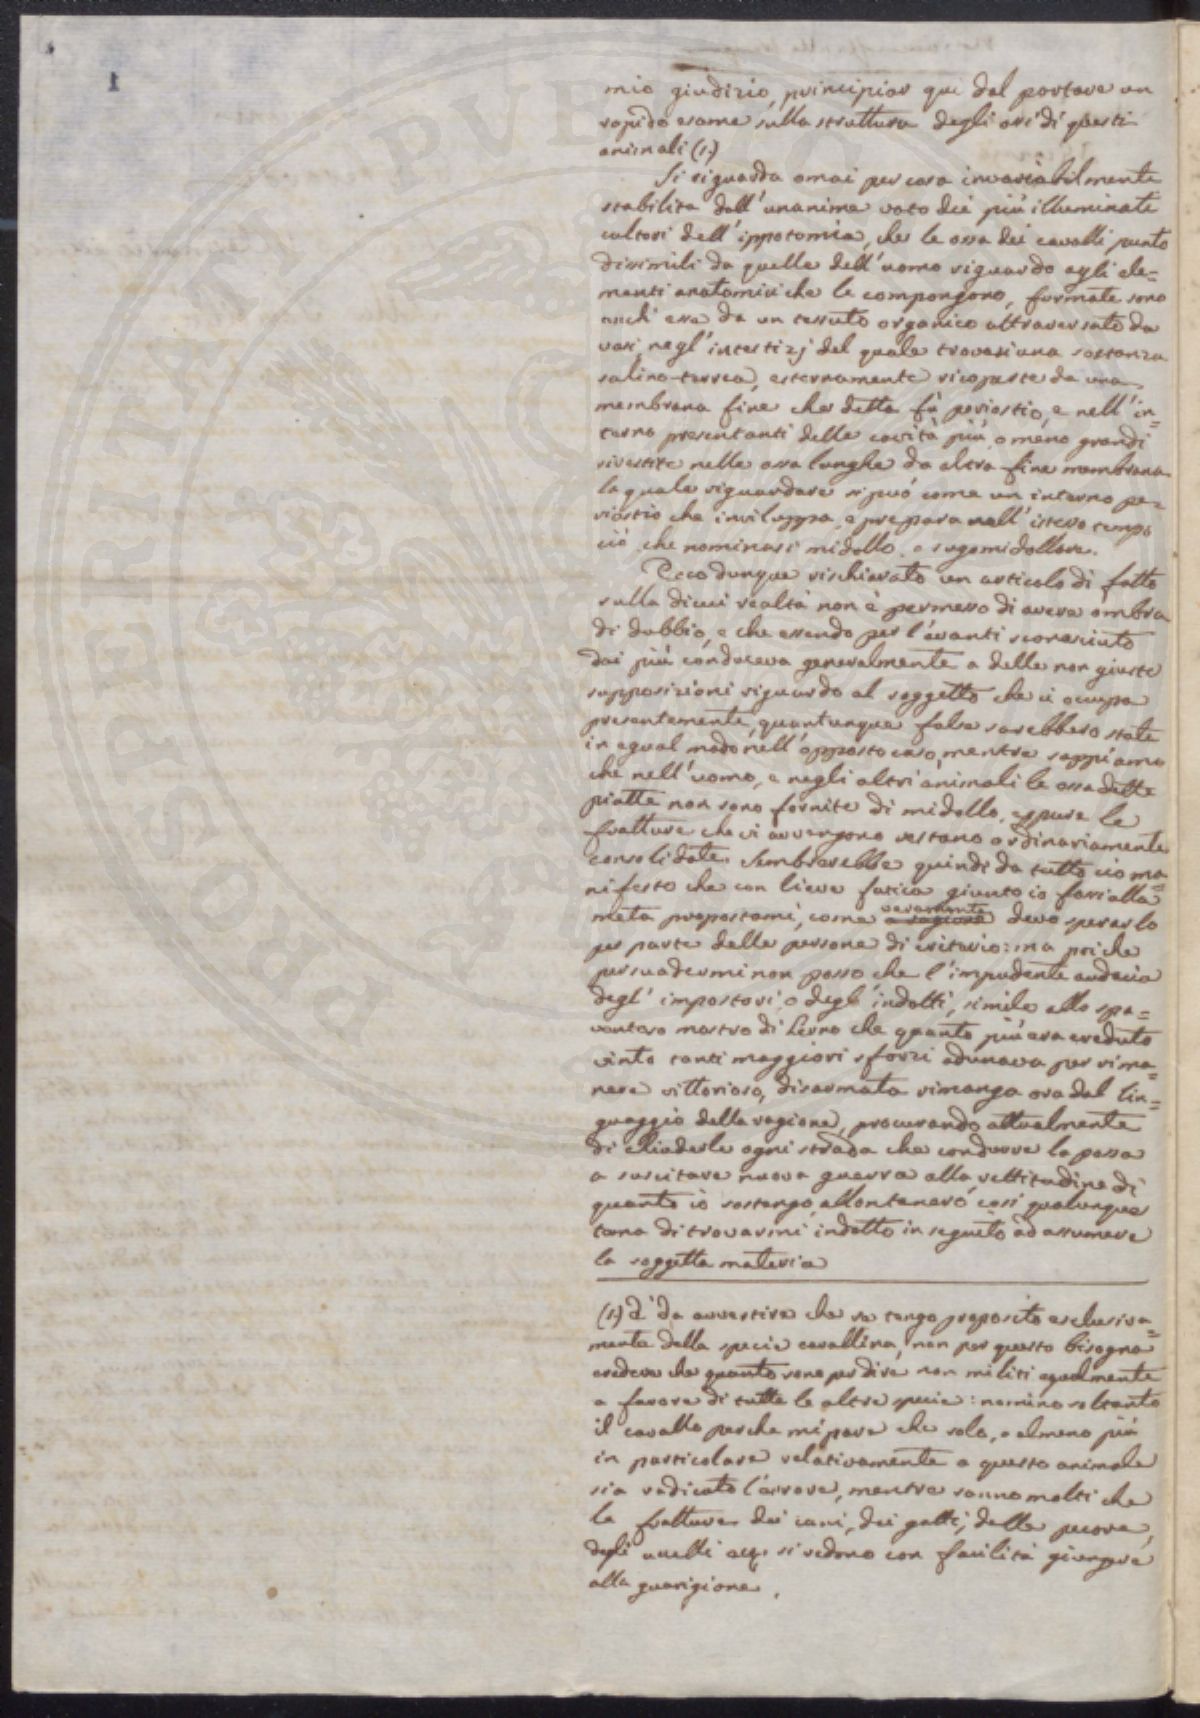 1
mio giudizio, principior qui dal portare un
rapido esame sulla struttura degli ossi di questi
animali (1.)
Si riguarda omai per cosa invariabilmente
stabilita dall'unanime voto dei più illuminati
cultori dell'ippotomia, che le ossa dei cavalli punto
dissimili da quelle dell'uomo riguardo agli ele=
menti anatomici che le compongono, formate sono
anch'esse da un tessuto organico attraversato da
vasi, negl'interstizj del quale trovasi una sostanza
salino-terrea, esternamente ricoperte da una
membrana fine che detta fù periostio, e nell'in=
terno presentanti delle cavità più, o meno grandi
rivestite nelle ossa lunghe da altra fine membrana
la quale riguardare si può come un interno pe=
riostio che inviluppa, e prepara nell'istesso tempo
ciò, che nominasi midollo, o sugo midollare.
Ecco dunque rischiarato un articolo di fatto
sulla di cui realtà non è permesso di avere ombra
di dubbio, e che essendo per l'avanti sconosciuto
dai più conduceva generalmente a delle non giuste
supposizioni riguardo al soggetto che ci occupa
presentemente, quantunque false sarebbero state
in egual modo nell'opposto caso, mentre sappiamo
che nell'uomo, e negli altri animali le ossa dette
piatte non sono fornite di midollo, eppure le
fratture che vi avvengono restano ordinariamente
consolidate. Sembrerebbe quindi da tutto ciò ma=
nifesto che con lieve fatica giunto io fossi alla
meta propostami, come a ragione veramente devo sperarlo
per parte delle persone di criterio: ma poiche
persuadermi non posso, che l'impudente audacia
degl'impostori, o degl'indotti, simile allo spa=
ventoso mostro di Lerno che quanto più era creduto
vinto tanti maggiori sforzi adunava per rima=
nere vittorioso, disarmata rimanga ora dal lin=
guaggio della ragione, procurando attualmente
di chiuderle ogni strada che condurre la possa
a suscitare nuova guerra alla rettitudine di
quanto io sostengo, allontanerò così qualunque
tema di trovarmi indotto in seguito ad assumere
la soggetta materia
(1) È da avvertire che se tengo proposito esclusiva=
mente della specie cavallina, non per questo bisogna
credere che quanto sono per dire non militi egualmente
a favore di tutte le altre specie: nomino soltanto
il cavallo perche mi pare che solo, o almeno più
in particolare relativamente a questo animale
sia radicato l'errore, mentre sanno molti che
le fratture dei cani, dei gatti, delle pecore,
degli uccelli ec. si vedono con facilità giungere
alla guarigione.